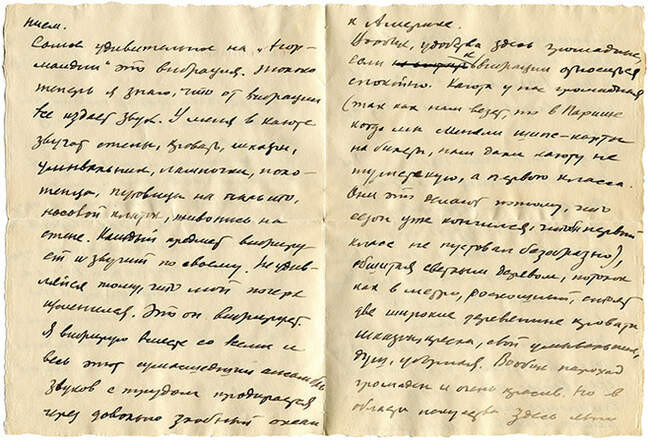 нием.
Самое удивительное на „Нор-
мандии" это вибрация. Только
теперь я знаю, что от вибрации
все издает звук. У меня в каюте
звучат стены, кровать, шкафы,
умывальник, лампочки, поло-
тенца, пуговицы на пальто,
носовой платок, живопись на
стене. Каждый предмет вибриру-
ет и звучит по своему. Не удив-
ляйся тому, что мой почерк
изменился. Это он вибрирует.
Я вибрирую вместе со всеми и
весь этот сумасшедший ансамбль
звуков с трудом продирается
через довольно злобный океан
к Америке.
Вообще, удобства здесь громадные,
если к вибрации относиться
спокойно. Каюта у нас громадная
(так как нам везет, то в Париже
когда мы меняли шипс-карты
на билеты, нам дали каюту не
туристскую, а первого класса.
Они это делают потому, что
сезон уже кончился, чтоб первый
класс не пустовал безобразно),
обшитая светлым деревом, потолок
как в метро, роскошный, стоят
две широкие деревянные кровати
шкафы, кресла, свой умывальник,
душ, уборная. Вообще пароход
громаден и очень красив. Но в
области искусства здесь